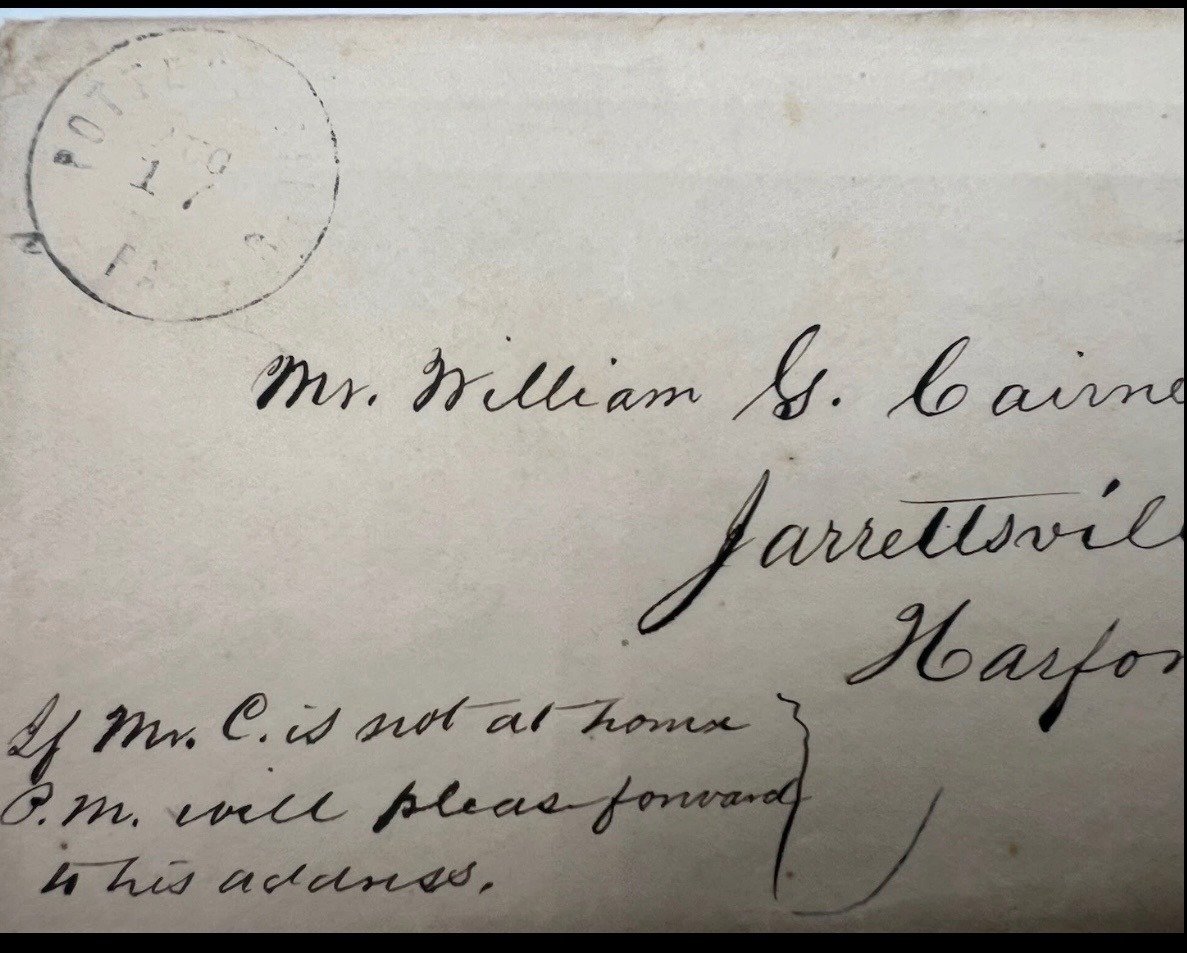 POTTE
1
PA
Mr. William G. Cairne
Jarrettsvill
Harfor
If Mr. C. is not at home
P.M. will pleas forward
to his address.